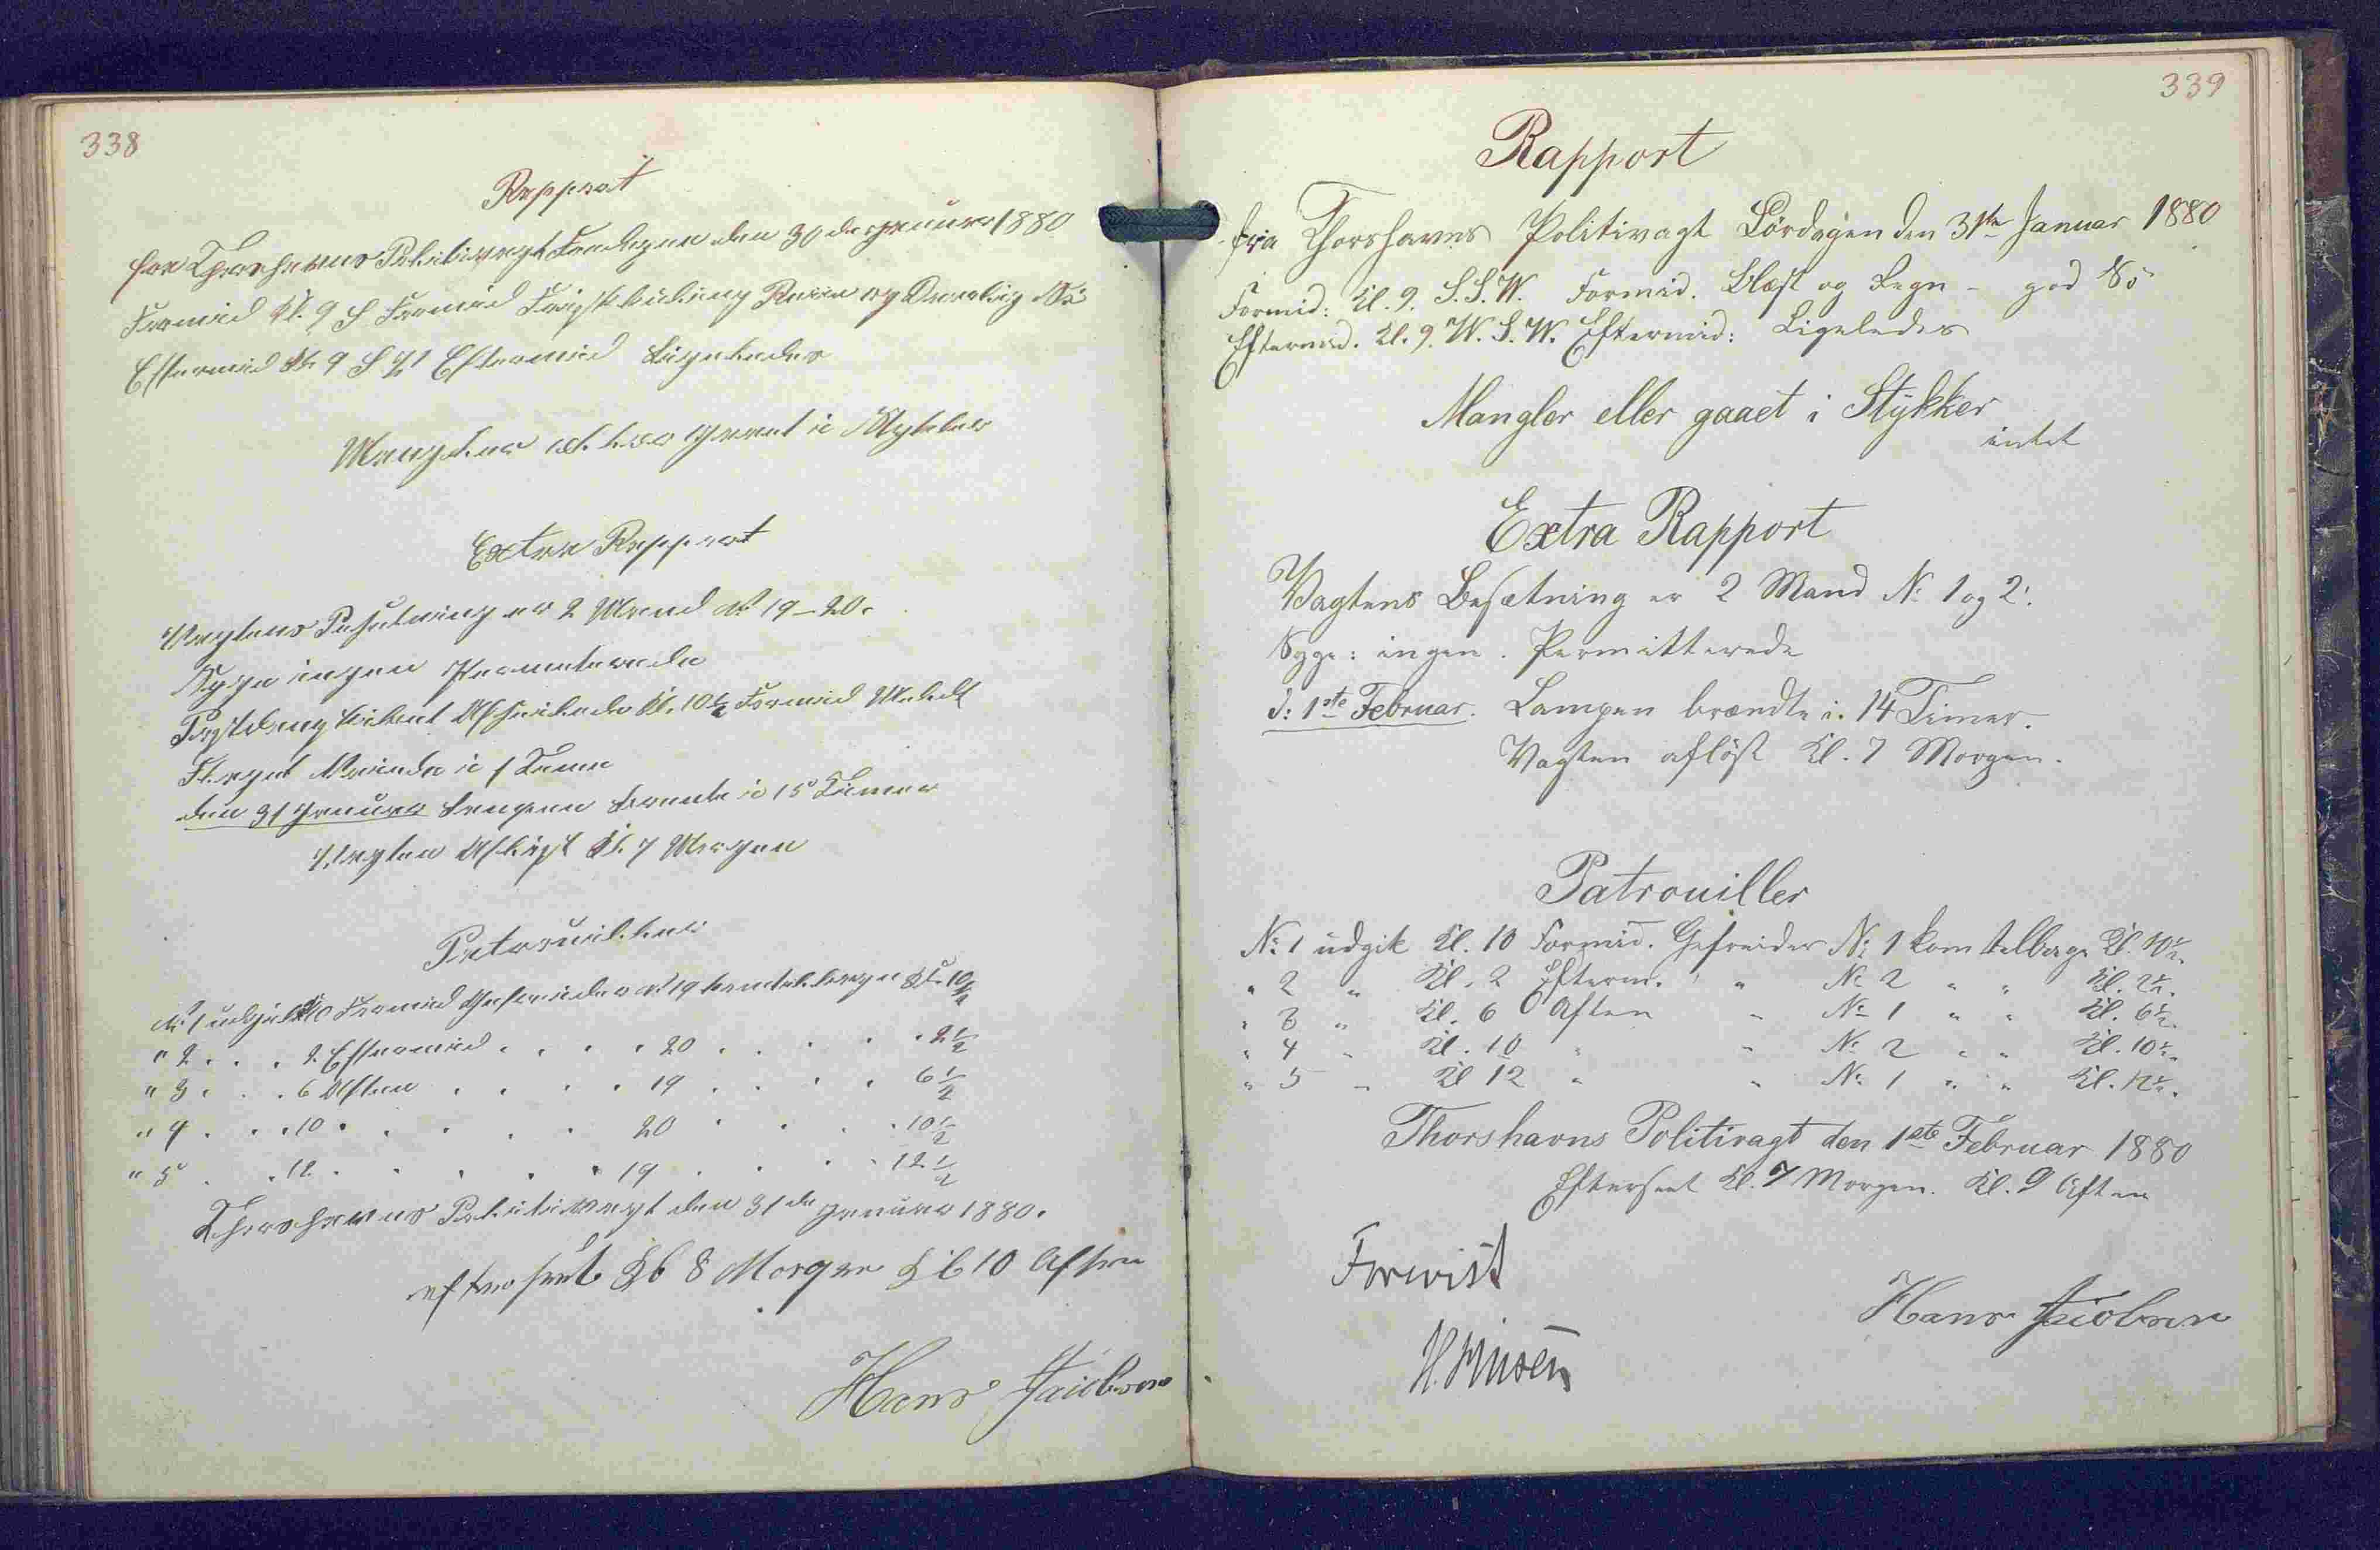 338
Rapport
fra Thorshavns Politivagt Fredagen den 30 de Januar 1880
Formid Kl. 9 S Formid Frisk Kuling Ravn og Dårlig Sö
Eftermid Kl. 9 S Eftermid Ligeledes
Mangler eller gaaet i Stykker
Extra Rapport
Vagtens Besætning er 2 Mand No 19-20.
Syge ingen Permitterede
Kl. 10½ Formid
Flaget Vaiede i 1 Time
den 31 Januar Lampen brænte i 15 Timer
Vagten Aflöst Kl. 7 Morgen
Patrouiller
No 1 udgik Kl 10 Formid Gefreider No 19 kom tilbage Kl. 10½
" 2 . . . 2 Eftermid . . . . 20 . . . . . 2½
" 3 . . . 6 Aften . . . . 19 . . . . 6½
" 4 . . . 10 . . . . . 20 . . . . 10½
" 5 . . 12 . . . . . 19 . . . . 12½
Thorshavns Politivagt den 31 de Januar 1880.
efterseet Kl 8 Morgen Kl 10 Aften
Hans Jacobsen
339
Rapport
fra Thorshavns Politivagt Lørdagen den 31te Januar 1880
Formid: Kl. 9. S.S.W. Formid. Blæst og Regn - god Sö
Eftermd. Kl. 9. W.S.W. Eftermid: Ligeledes
Mangler eller gaaet i Stykker
intet
Extra Rapport
Vagtens Besætning er 2 Mand No 1 og 2.
Syge: ingen. Permitterede
d: 1ste Februar. Lampen brændte i. 14 Timer.
Vagten aflöst Kl. 7 Morgen.
Patrouiller
No 1 udgik Kl. 10 Formid. Gefreider No 1 kom tilbage Kl. 10½.
" 2 " Kl. 2 Efterm. " No 2 " " Kl. 2½.
" 3 " Kl. 6 Aften " No 1 " " Kl. 6½.
" 4 " Kl. 10 " " No 2 " " Kl. 10½.
" 5 " Kl 12 " " No 1 " " Kl. 12½.
Thorshavns Politivagt den 1ste Februar 1880
Efterseet Kl. 7 Morgen. Kl. 9 Aften
Forevist
Hans Jacobsen
H. Finsen